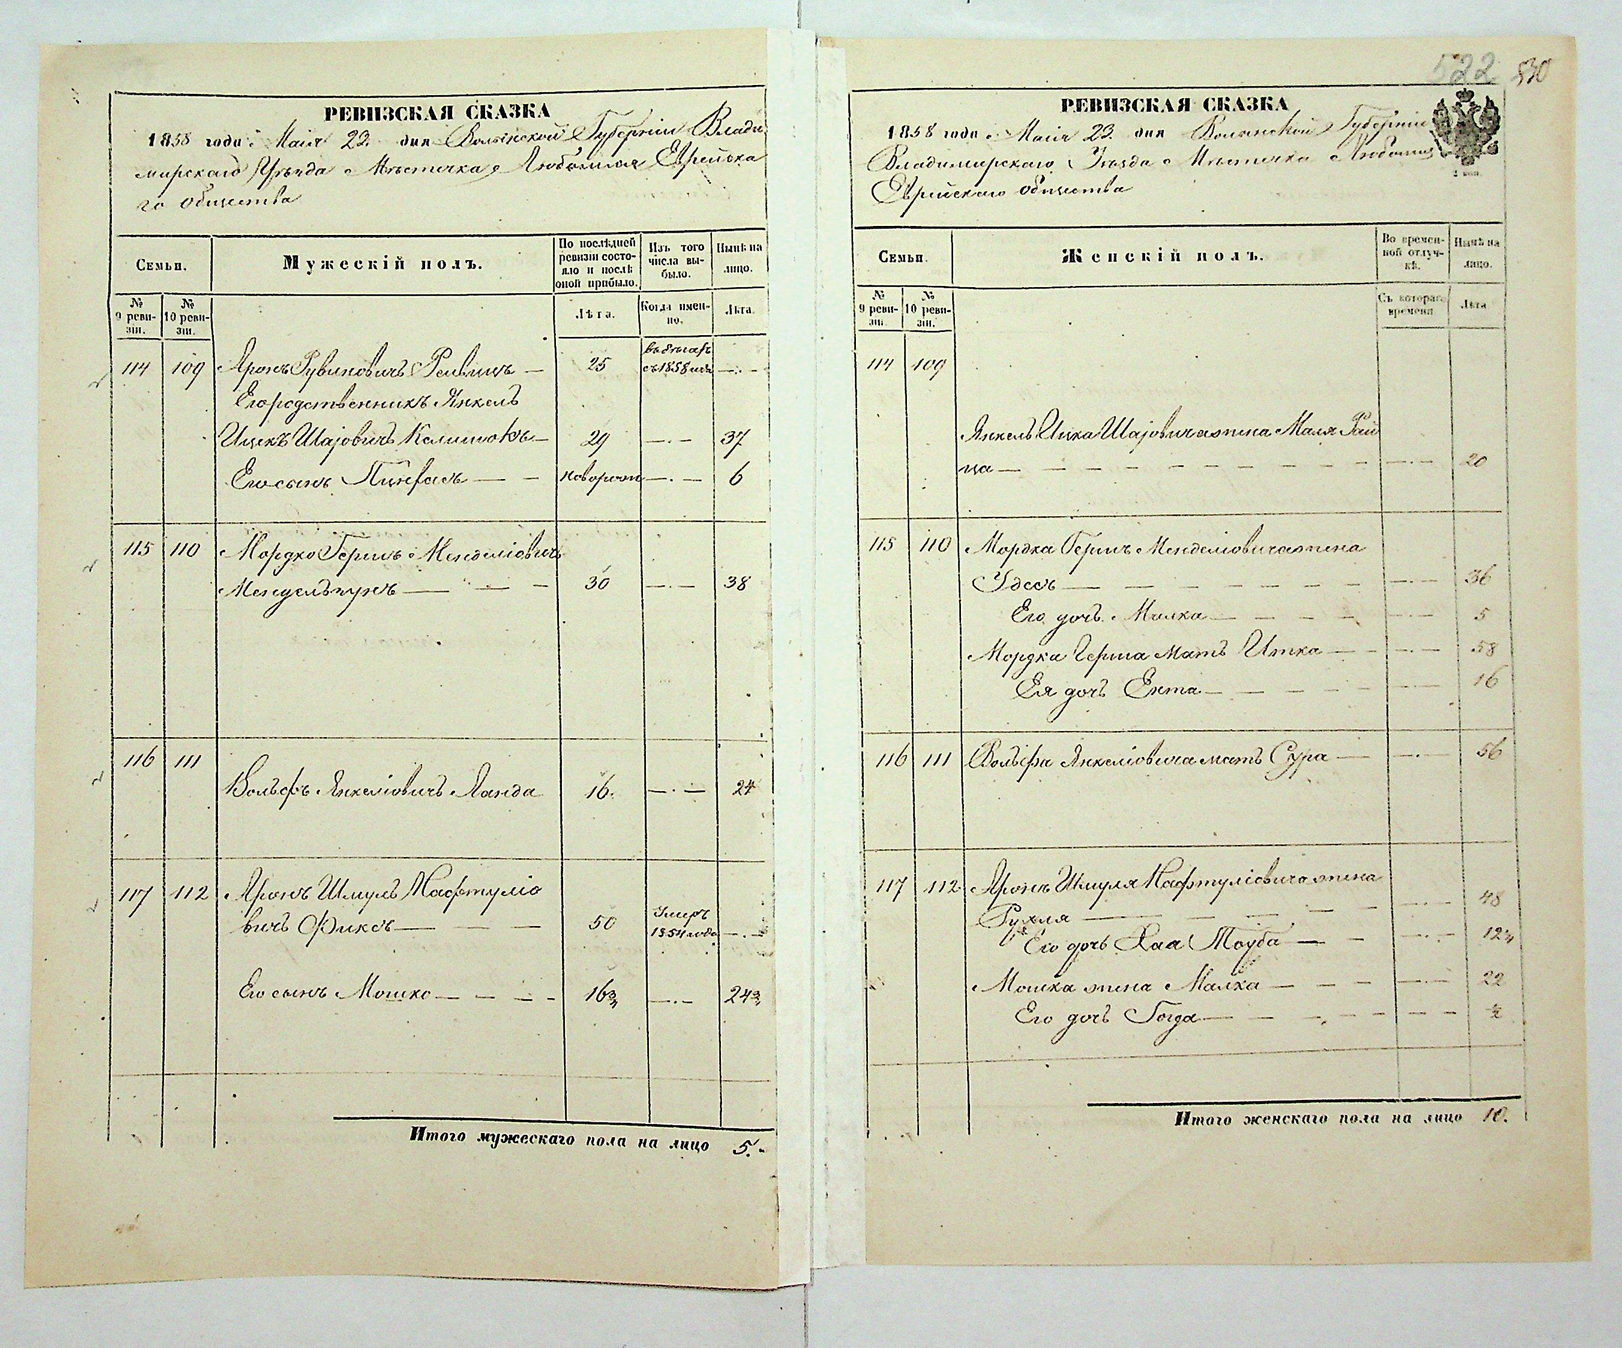 РЕВИЗСКАЯ СКАЗКА
1858 года Маія 23 дня Волынской Губерніи Влади
мирскаго Уѣзда Мѣстечка Любомля Еврейска
го общества
Семьи.
Мужескій полъ.
По послѣдней ревизіи состояло и послѣ оной прибыло.
Изъ того числа выбыло.
Нынѣ на лицо.
№ 9 ревизіи.
№ 10 ревизіи.
Лѣта.
Когда именно.
Лѣта.
114 109 Аронъ Рувиновичъ — 25 съ 1858 —
Его родственникъ Янкель
Ицекъ Шаіовичъ — 29 — 37
Его сынъ Пинхасъ — — 6
115 110 Мордко Гершъ Менделіовичъ
— 30 — 38
116 111
Вольфъ Янкеліовичъ Ланда 16 — 24
117 112 Аронъ Шмуль Нафтуліо
вичъ Фиксъ — 50 Умеръ 1854 года —
Его сынъ Мошко — 16¾ — 24¾
Итого мужескаго пола на лицо 5.
522 530
РЕВИЗСКАЯ СКАЗКА
1858 года Маія 23 дня Волынской Губерніи
Владимирскаго Уѣзда Мѣстечка Любомля
Еврейскаго общества
2 коп.
Семьи.
Женскій полъ.
Во временной отлучкѣ.
Нынѣ на лицо.
№ 9 ревизіи.
№ 10 ревизіи.
Съ котораго времени
Лѣта
114 109
Янкель Ицка Шаіовича жена Маля Рай
ца — — 20
115 110 Мордка Герша Менделіовича жена
Удесъ — — 36
Его дочь Малка — 5
Мордка Герша мать Итка — — 58
Ея дочь Ента — — 16
116 111 Вольфа Янкеліовича мать Сура — — 56
117 112 Аронъ Шмуля Нафтуліовича жена
Рухля — — 48
Его дочь Хая Тауба — — 12¾
Мошка жена Малка — — 22
Его дочь Гогда — — ½
Итого женскаго пола на лицо 10.